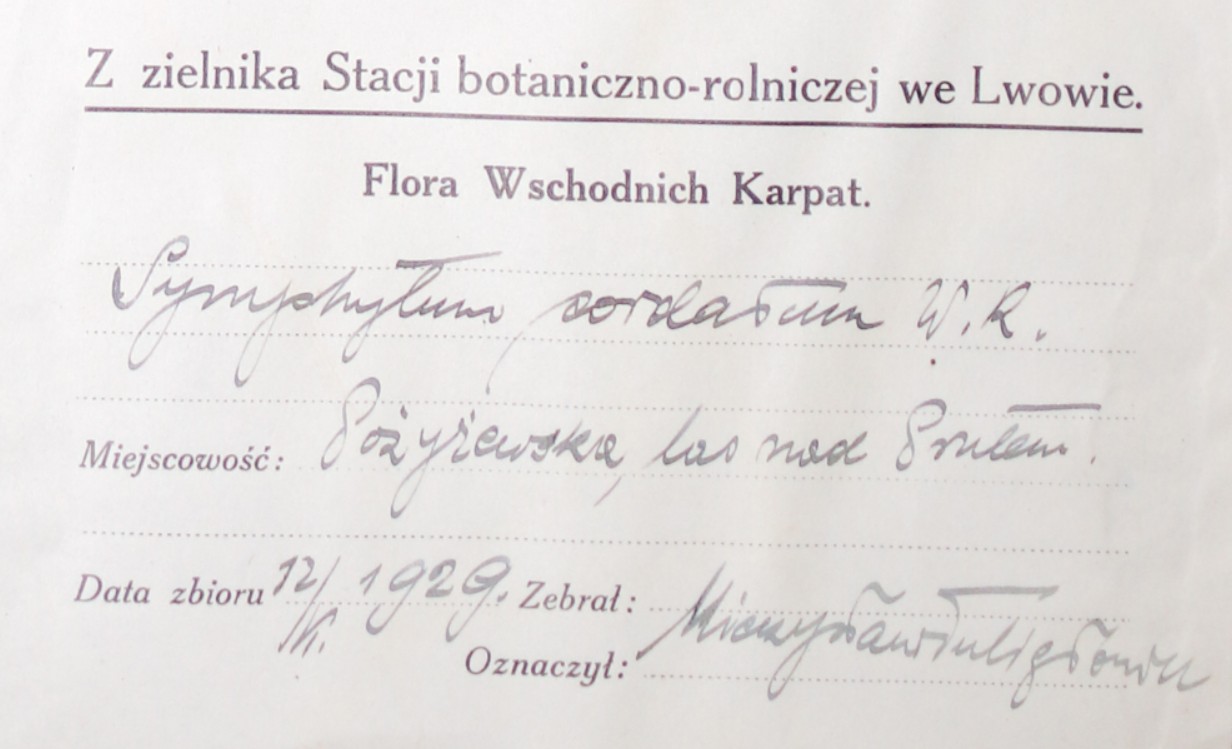 Z zielnika Stacji botaniczno-rolniczej we Lwowie.
Flora Wschodnich Karpat.
Symphytum cordatum W.K.
Miejscowość: Pożyżewska, las nad Prutem.
Data zbioru 12/VI. 1929. Zebrał: Mieczysław
Oznaczył: